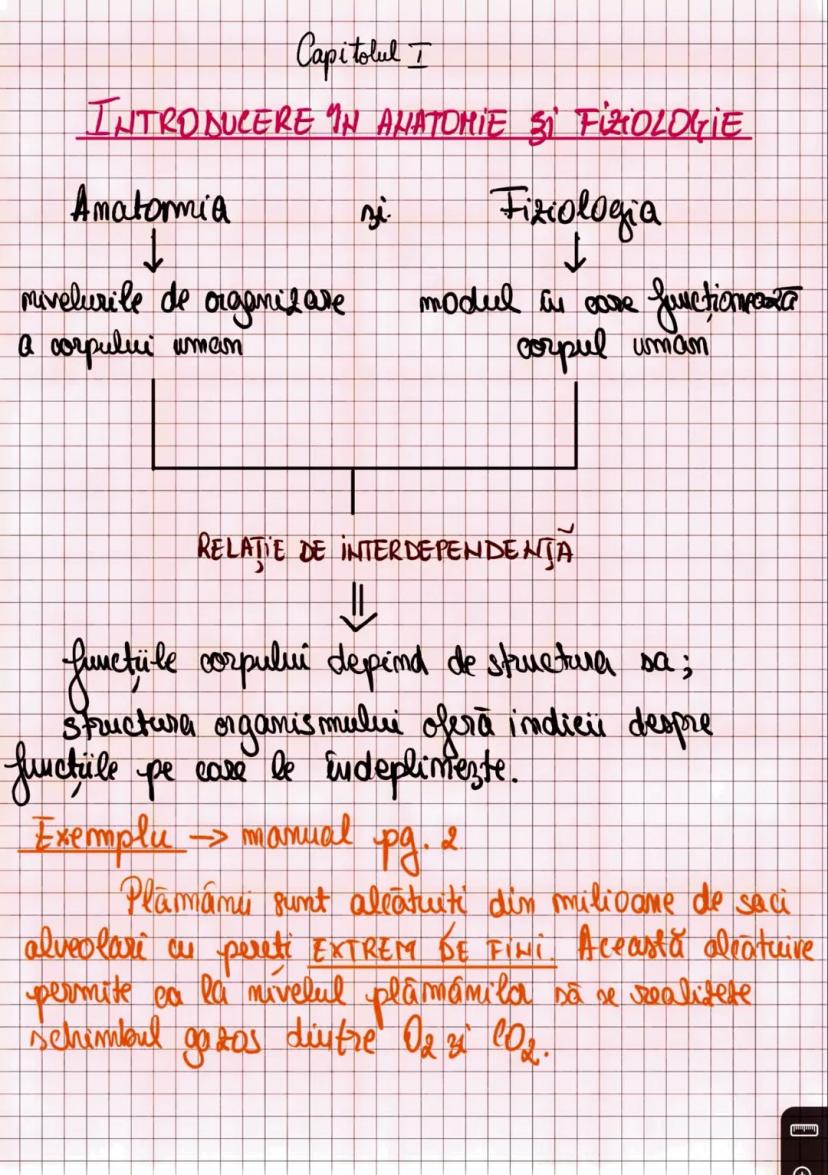 Capitolul I
INTRODUCERE ÎN ANATOMIE ȘI FIZIOLOGIE
Anatomia și Fiziologia
nivelurile de organizare modul în care funcționează
a corpului uman corpul uman
RELAȚIE DE INTERDEPENDENȚĂ
funcțiile corpului depind de structura sa;
structura organismului oferă indicii despre
funcțiile pe care le îndeplinește.
Exemplu → manual pg. 2
Plămânii sunt alcătuiți din milioane de saci
alveolari cu pereți EXTREM DE FINI. Această alcătuire
permite ca la nivelul plămânilor să se realizeze
schimbul gazos dintre O2 și CO2.